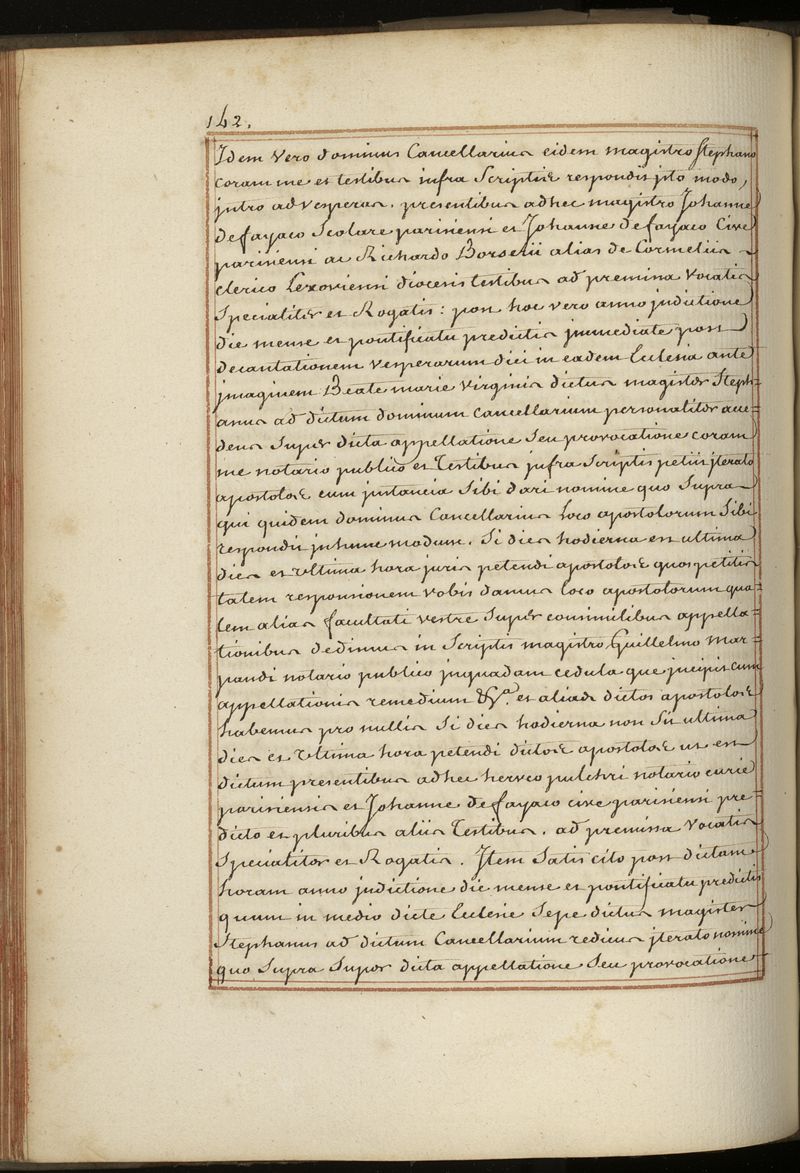 142.
Idem vero dominus Cancellarius eidem magistro Stephano
coram me et testibus infra Scriptis respondit isto modo,
jntro ad vesperas. presentibus adhec magistro Johanne
de fayaco Scolare parisiensi et Johanne de fayaco Cive
parisiensi ac Richardo Borselii alias de Cormeliis
clerico Lexoviensi diocesis testibus ad premissa vocatis
Specialiter et Rogatis: post hoc vero anno jndictione
die mense et pontificatu predictis jmmediate post
decantationem vesperarum dici in eadem Eclesia ante
jmaginem Beate marie virginis dictus magister Steph=
anus ad dictum dominum cancellarium personaliter acce=
dens Super dicta appellatione Seu provocatione coram
me notario publico et Testibus jnfra Scriptis petiit jterato
apostolos cum jnstancia Sibi dari nomine quo Supra
qui quidem dominus Cancellarius Loco apostolorum Sibi
respondit jnhunc modum. Si dies hodierna est ultima
dies et vltima hora juris petendi apostolos quos petitis
talem responsionem vobis damus loco apostolorum qua=
lem alias facultati vestre Super consimilibus appella=
tionibus dedimus in Scriptis magistro Guillelmo Mar=
pandi notario publico jnquadam cedula que jncipit cum
appellationis remedium &c.ª et alias dictos apostolos
habemus pro nullis Si dies hodierna non Sit ultima
dies et vltima hora petendi dictos apostolos ut est
dictum presentibus adhec herveo pulchri notario curie
parisiensis et Johanne de fayaco cive parisiensi pre=
dicto et pluribus aliis Testibus. ad premissa vocatis
Specialiter et Rogatis. Jtem Satis cito post dictam
horam anno jndictione die mense et pontificatu predictis
quum in medio dicte Eclesie Sepe dictus magister
Stephanus ad dictum Cancellarium rediens jterato nomine
quo Supra Super dicta appellatione Seu provocatione